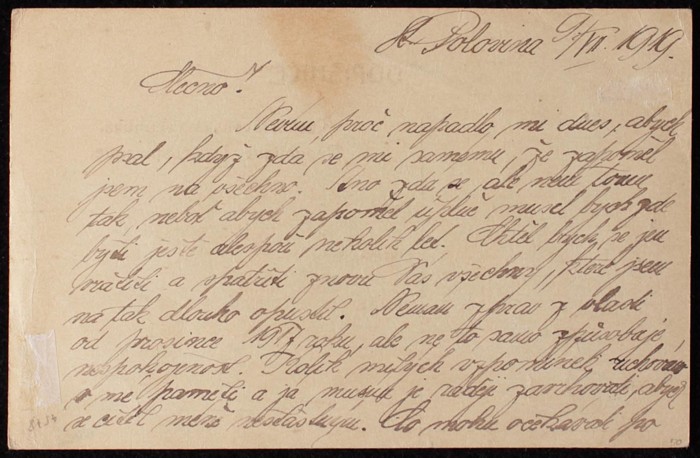 St. Polovina 9/VII. 1919.
Slečno!
Nevím, proč napadlo mi dnes, abych
psal, když zdá se mi samému, že zapomněl
jsem na všechno. Ano zdá se, ale není tomu
tak, neboť abych zapomněl úplně musel bych zde
býti ještě alespoň několik let. Chtěl bych se jen
vrátiti a spatřiti znovu Vás všechny, které jsem
na tak dlouho opustil. Nemám zpráv z vlasti
od prosince 1917 roku, ale ne to samo způsobuje
nespokojenost. Kolik milých vzpomínek uchováno
v mé paměti a já musím je raději zavrhovati, abych
se cítil méně nešťastným. Co mohu očekávati po